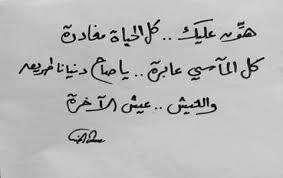 هوّن عليك .. كل الحياة مغادرة
كل المآسي عابرة .. يا صاح دنيانا طريق
والعيش .. عيش الآخرة